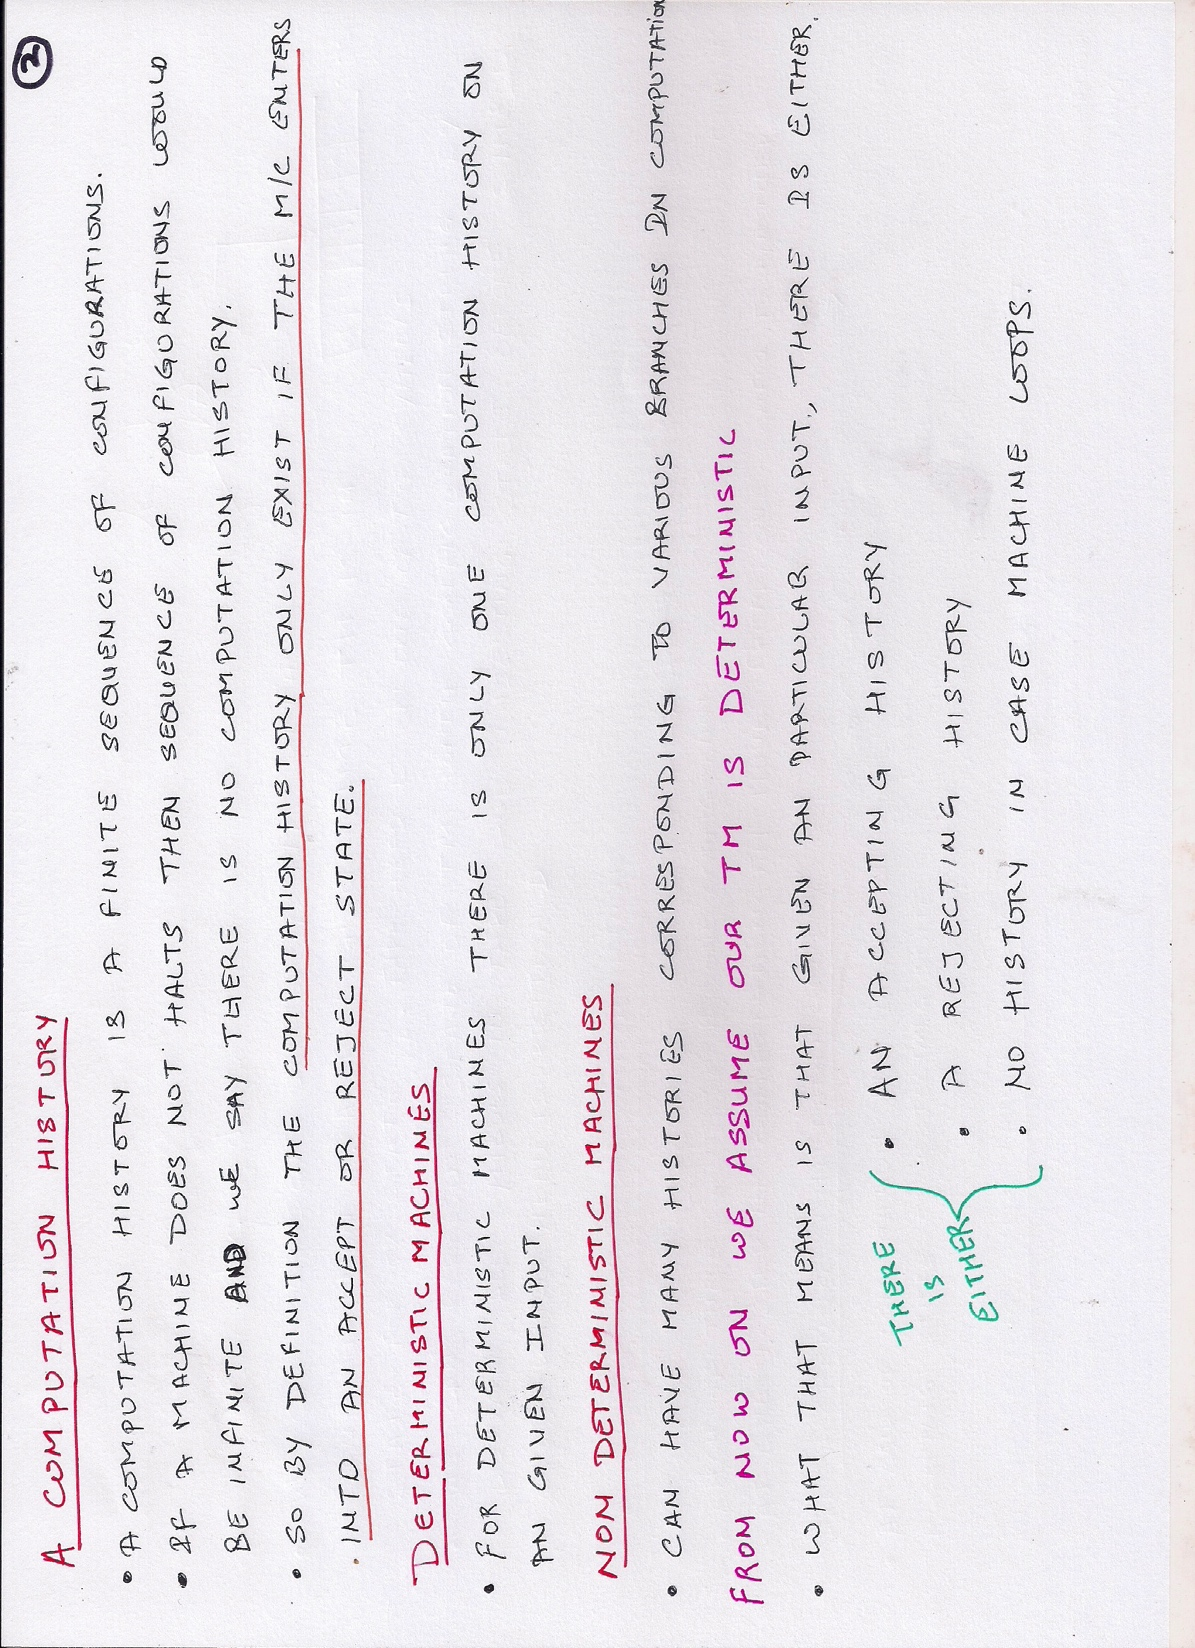 2
A COMPUTATION HISTORY
• A COMPUTATION HISTORY IS A FINITE SEQUENCE OF CONFIGURATIONS.
• IF A MACHINE DOES NOT HALTS THEN SEQUENCE OF CONFIGURATIONS WOULD
BE INFINITE AND WE SAY THERE IS NO COMPUTATION HISTORY.
• SO BY DEFINITION THE COMPUTATION HISTORY ONLY EXIST IF THE M/C ENTERS
INTO AN ACCEPT OR REJECT STATE.
DETERMINISTIC MACHINES
• FOR DETERMINISTIC MACHINES THERE IS ONLY ONE COMPUTATION HISTORY ON
AN GIVEN INPUT.
NON DETERMINISTIC MACHINES
• CAN HAVE MANY HISTORIES CORRESPONDING TO VARIOUS BRANCHES IN COMPUTATION
FROM NOW ON WE ASSUME OUR TM IS DETERMINISTIC
• WHAT THAT MEANS IS THAT GIVEN AN PARTICULAR INPUT, THERE IS EITHER.
THERE
IS
EITHER
• AN ACCEPTING HISTORY
• A REJECTING HISTORY
• NO HISTORY IN CASE MACHINE LOOPS.